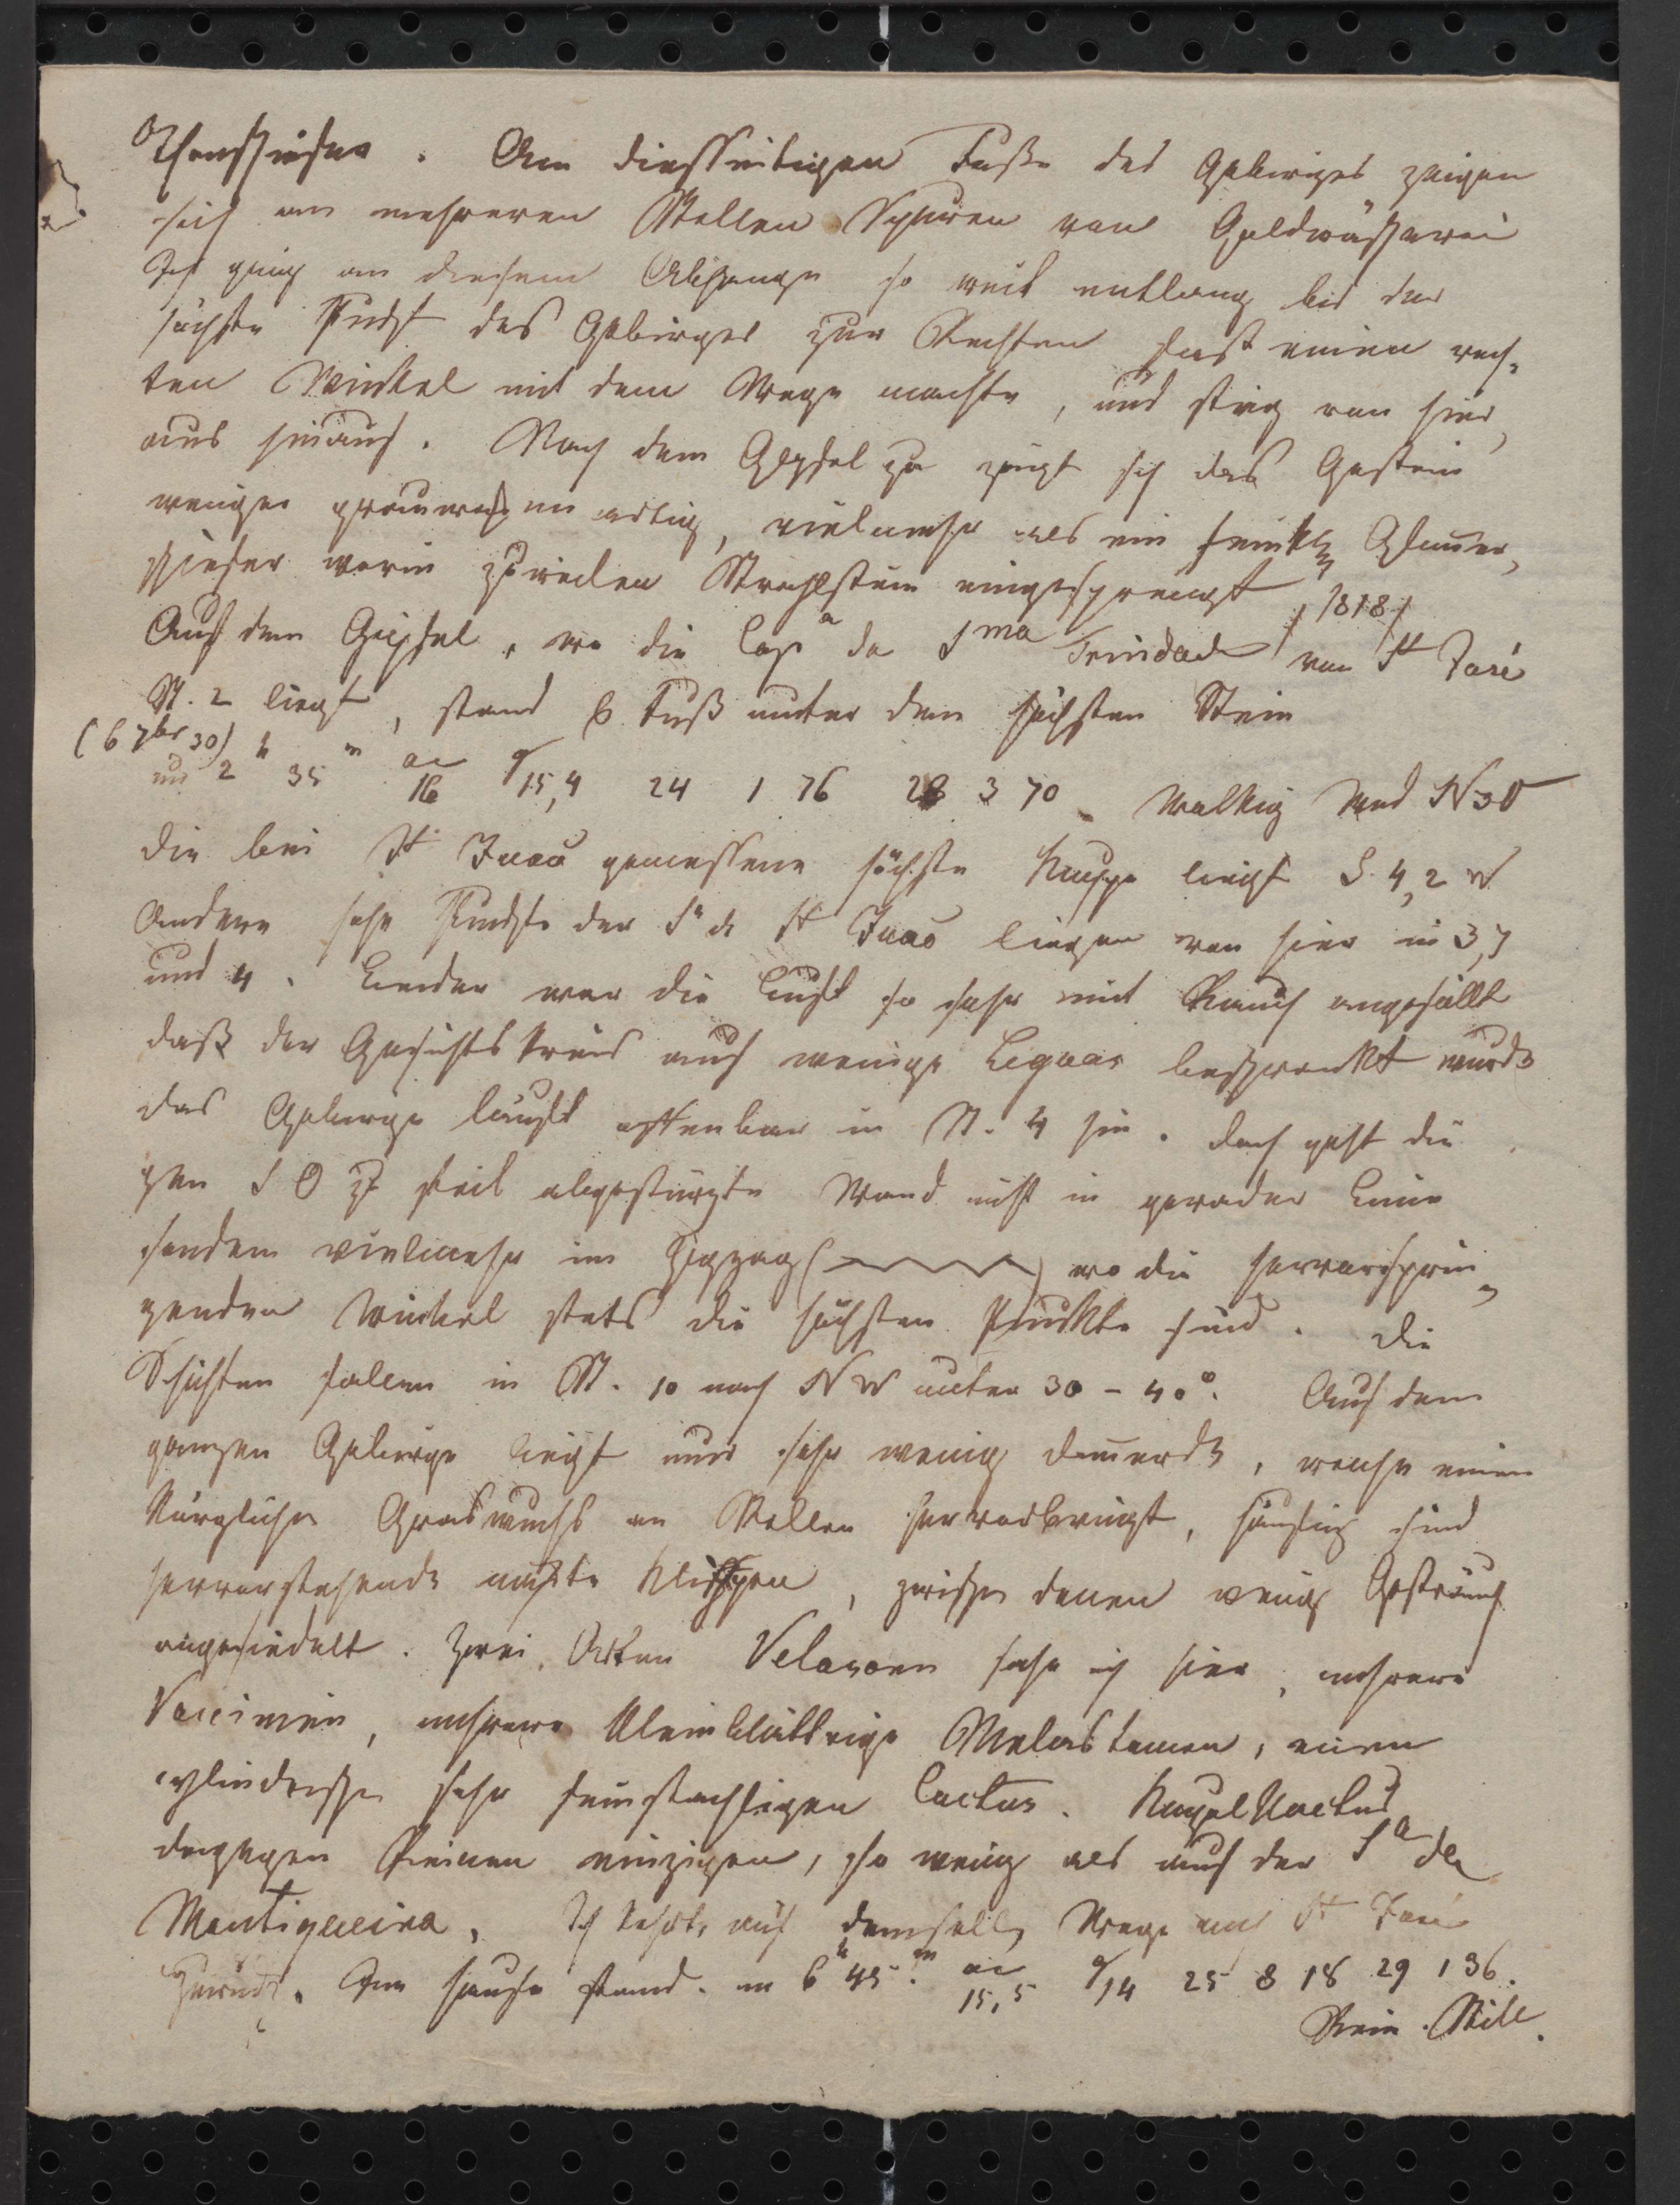 Thonschiefer. Am diesseitigen Fuße des Gebirges zeigen
sich an mehreren Stellen Spuren von Goldwäscherei
Ich ging an diesem Abhange so weit entlang bis der
höchste Punkt des Gebirges zur Rechten fast einen rech-
ten Winkel mit dem Wege machte, und stieg von hier
aus hinauf. Nach dem Gipfel zu zeigt sich das Gestein
weniger grauwacken artig, vielmehr als ein Glimer-
schiefer worin zuweilen Strahlstein eingesprengt /1818/
Auf dem Gipfel, wo die Capª da Sma Trindade von St José
St. 2 liegt, stand 6 Fuß unter dem höchsten Stein
(6 7br 30)
um 2h 35m 16 15,4 24 1 76 28 3 70. Wolkig Wind NSO
die bei St Joao gemessene höchste Kuppe liegt S. 4,2 W
Andere hohe Punkte der Sª de St Joao liegen von hier in 3,7
und 4. Leider war die Luft so sehr mit Rauch angefüllt
daß der Gesichtskreis auf wenige Legoas beschränkt wurde
das Gebirge läuft offenbar in St. 4 hin. doch geht die
gen SO steil abgestürzte Wand nicht in gerader Linie
sondern vielmehr im Zigzag ( ) wo die hervorsprin-
genden Winkel stets die höchsten Punkte sind. die
Schichten fallen in St. 10 nach NW unter 30 - 40°. Auf dem
ganzen Gebirge liegt nur sehr wenig damerde, welche einen
kärglichen Graswuchs an Stellen hervorbringt, häufig sind
hervorstehende nackte Klippen, zwischen denen wenig Gesträuch
angesiedelt. Zwei Arten Velosoen sah ich hier, mehrere
Vaccinien, mehrere kleinblättrige Melastomen, einen
cylindrischen sehr feinstachligen Cactus. Kugelkactus
dagegen keinen einzigen, so wenig als auf der Sª da
Mantiqueira. Ich kehrte auf demselben Wege nach St José
Zurück. Zu Hause stand um 6h 45m 15,5 14 25 8 18 29 1 36.
Rein. Still.